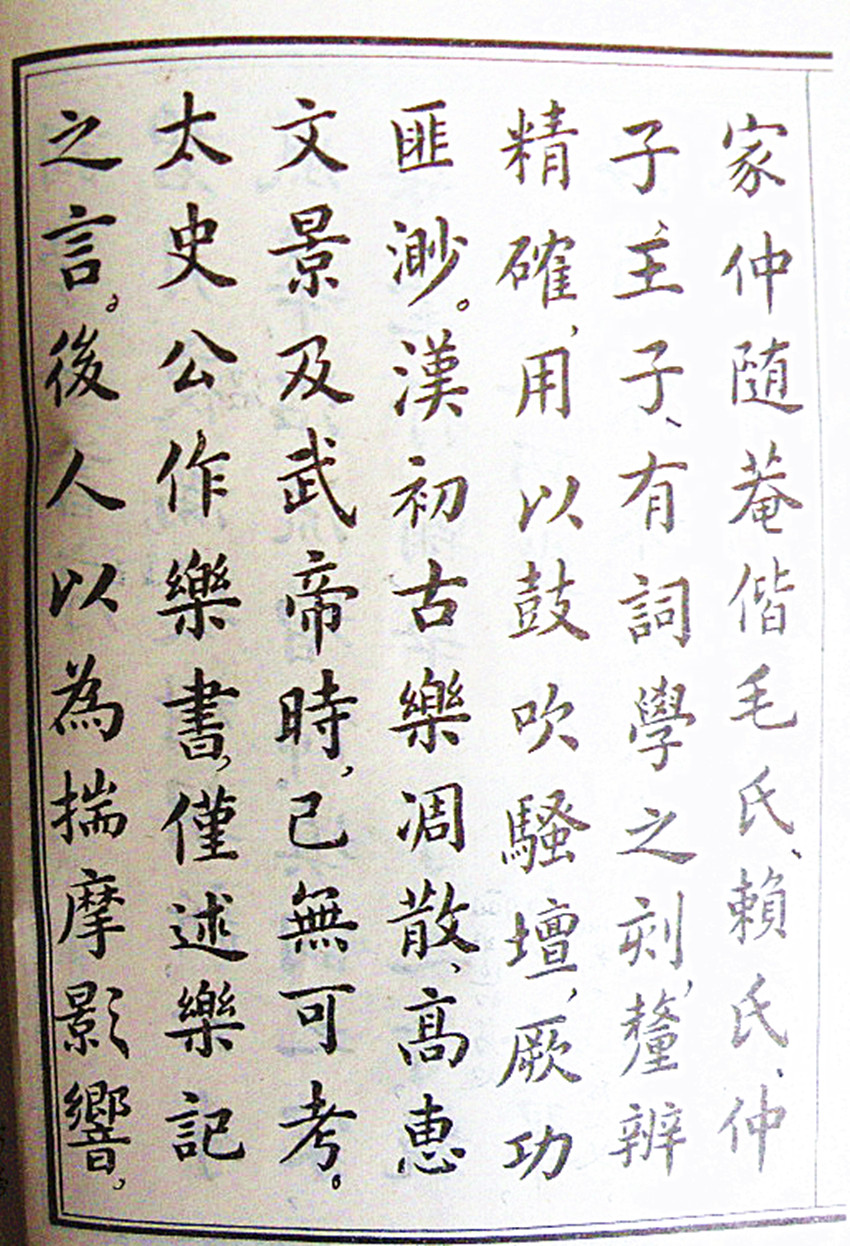 家仲随菴偕毛氏、賴氏、仲
子主子、有詞學之刻，釐辨
精確，用以鼓吹騷壇，厥功
匪渺。漢初古樂凋散，高惠
文景及武帝時，已無可考。
太史公作樂書，僅述樂記
之言。後人以為揣摩影響，